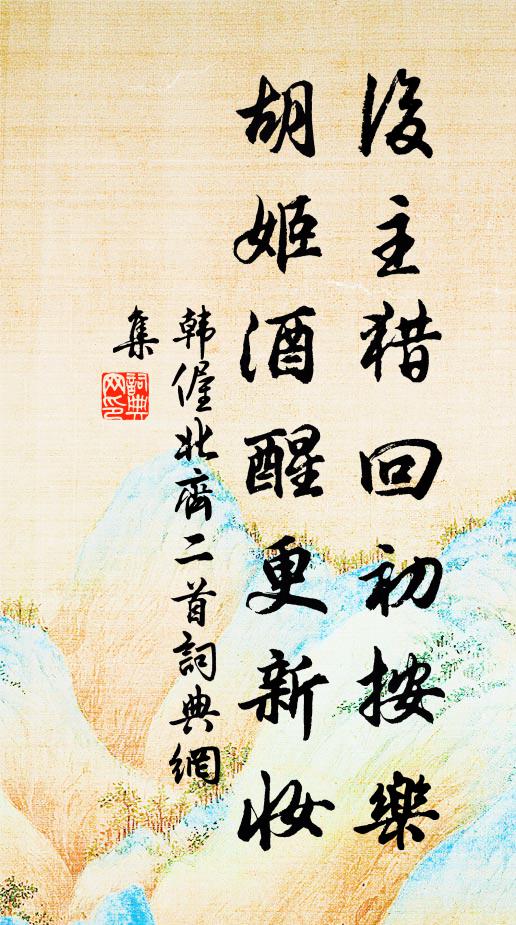 後主猎回初按樂
胡姬酒醒更新妝
韩偓北齊二首詞典網
集
詞典
网印